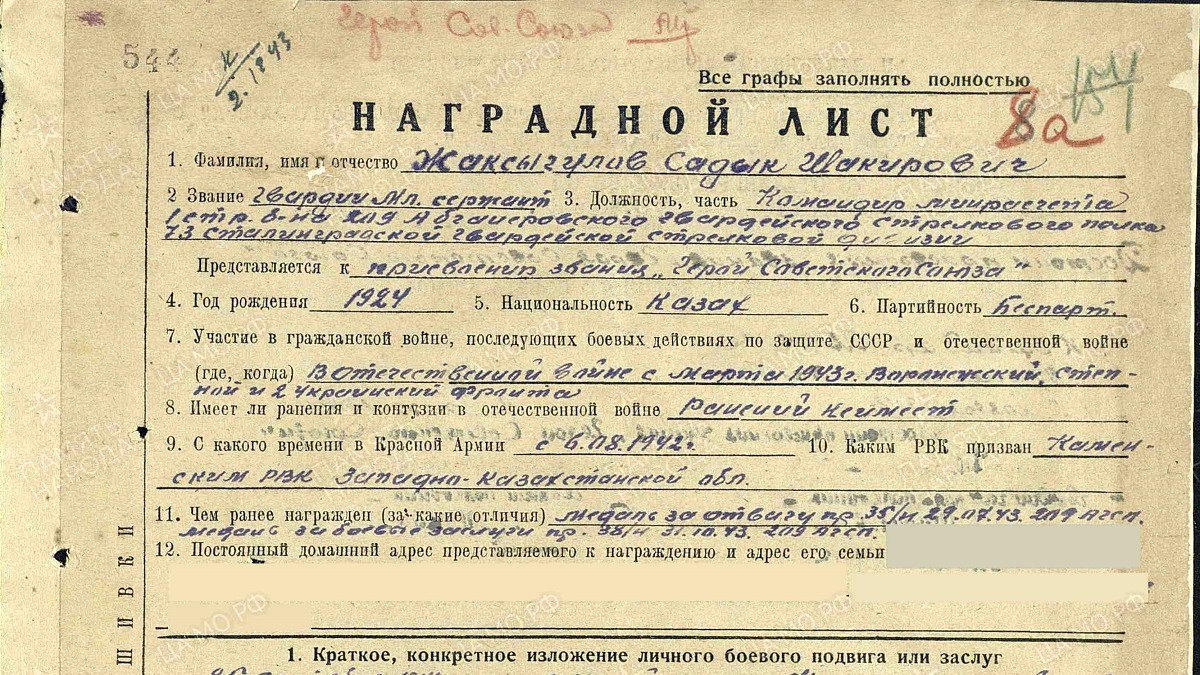 Герой Сов. Союза
544
2.1843
Все графы заполнять полностью
НАГРАДНОЙ ЛИСТ
8а
1. Фамилия, имя и отчество Жаксыгулов Садык Шакирович
2 Звание Гвардии Мл. сержант 3. Должность, часть Командир минрасчета
1 стр. б-на 209 Абганеровского гвардейского стрелкового полка
73 Сталинградской гвардейской стрелковой дивизии
Представляется к присвоению звания „Герой Советского Союза"
4. Год рождения 1924 5. Национальность Казах 6. Партийность Беспарт.
7. Участие в гражданской войне, последующих боевых действиях по защите СССР и отечественной войне
(где, когда) В отечественной войне с марта 1943 г. Воронежский, Степ-
ной и 2 Украинский фронта
8. Имеет ли ранения и контузии в отечественной войне Ранений не имеет
9. С какого времени в Красной Армии с 6.08.1942 г. 10. Каким РВК призван Камен-
ским РВК Западно-Казахстанской обл.
11. Чем ранее награжден (за какие отличия) медаль за отвагу пр. 35/н 29.07.43. 209 Агсп.
медаль за боевые заслуги пр. 38/н 31.10.43. 209 Агсп.
12. Постоянный домашний адрес представляемого к награждению и адрес его семьи
1. Краткое, конкретное изложение личного боевого подвига или заслуг
ШИВКИ
ЦАМО.РФ